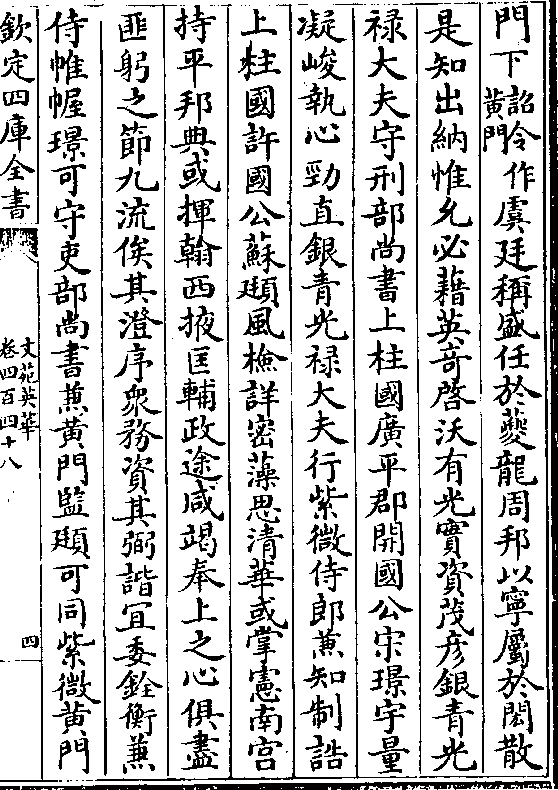 門下詔令黄門作虞廷稱盛任於夔龍周邦以寧屬於閎散
是知出納惟允必藉英奇啓沃有光實資茂彦銀青光
禄大夫守刑部尚書上柱國廣平郡開國公宋璟宇量
凝峻執心勁直銀青光禄大夫行紫微侍郎兼知制誥
上柱國許國公蘇頲風檢詳密藻思清華或掌憲南宫
持平邦典或揮翰西掖匡輔政途咸竭奉上之心俱盡
匪躬之節九流俟其澄序衆務資其弼諧宜委銓衡兼
侍帷幄璟可守吏部尚書兼黄門監頲可同紫微黄門
欽定四庫全書
文苑英華
卷四百四十八
四